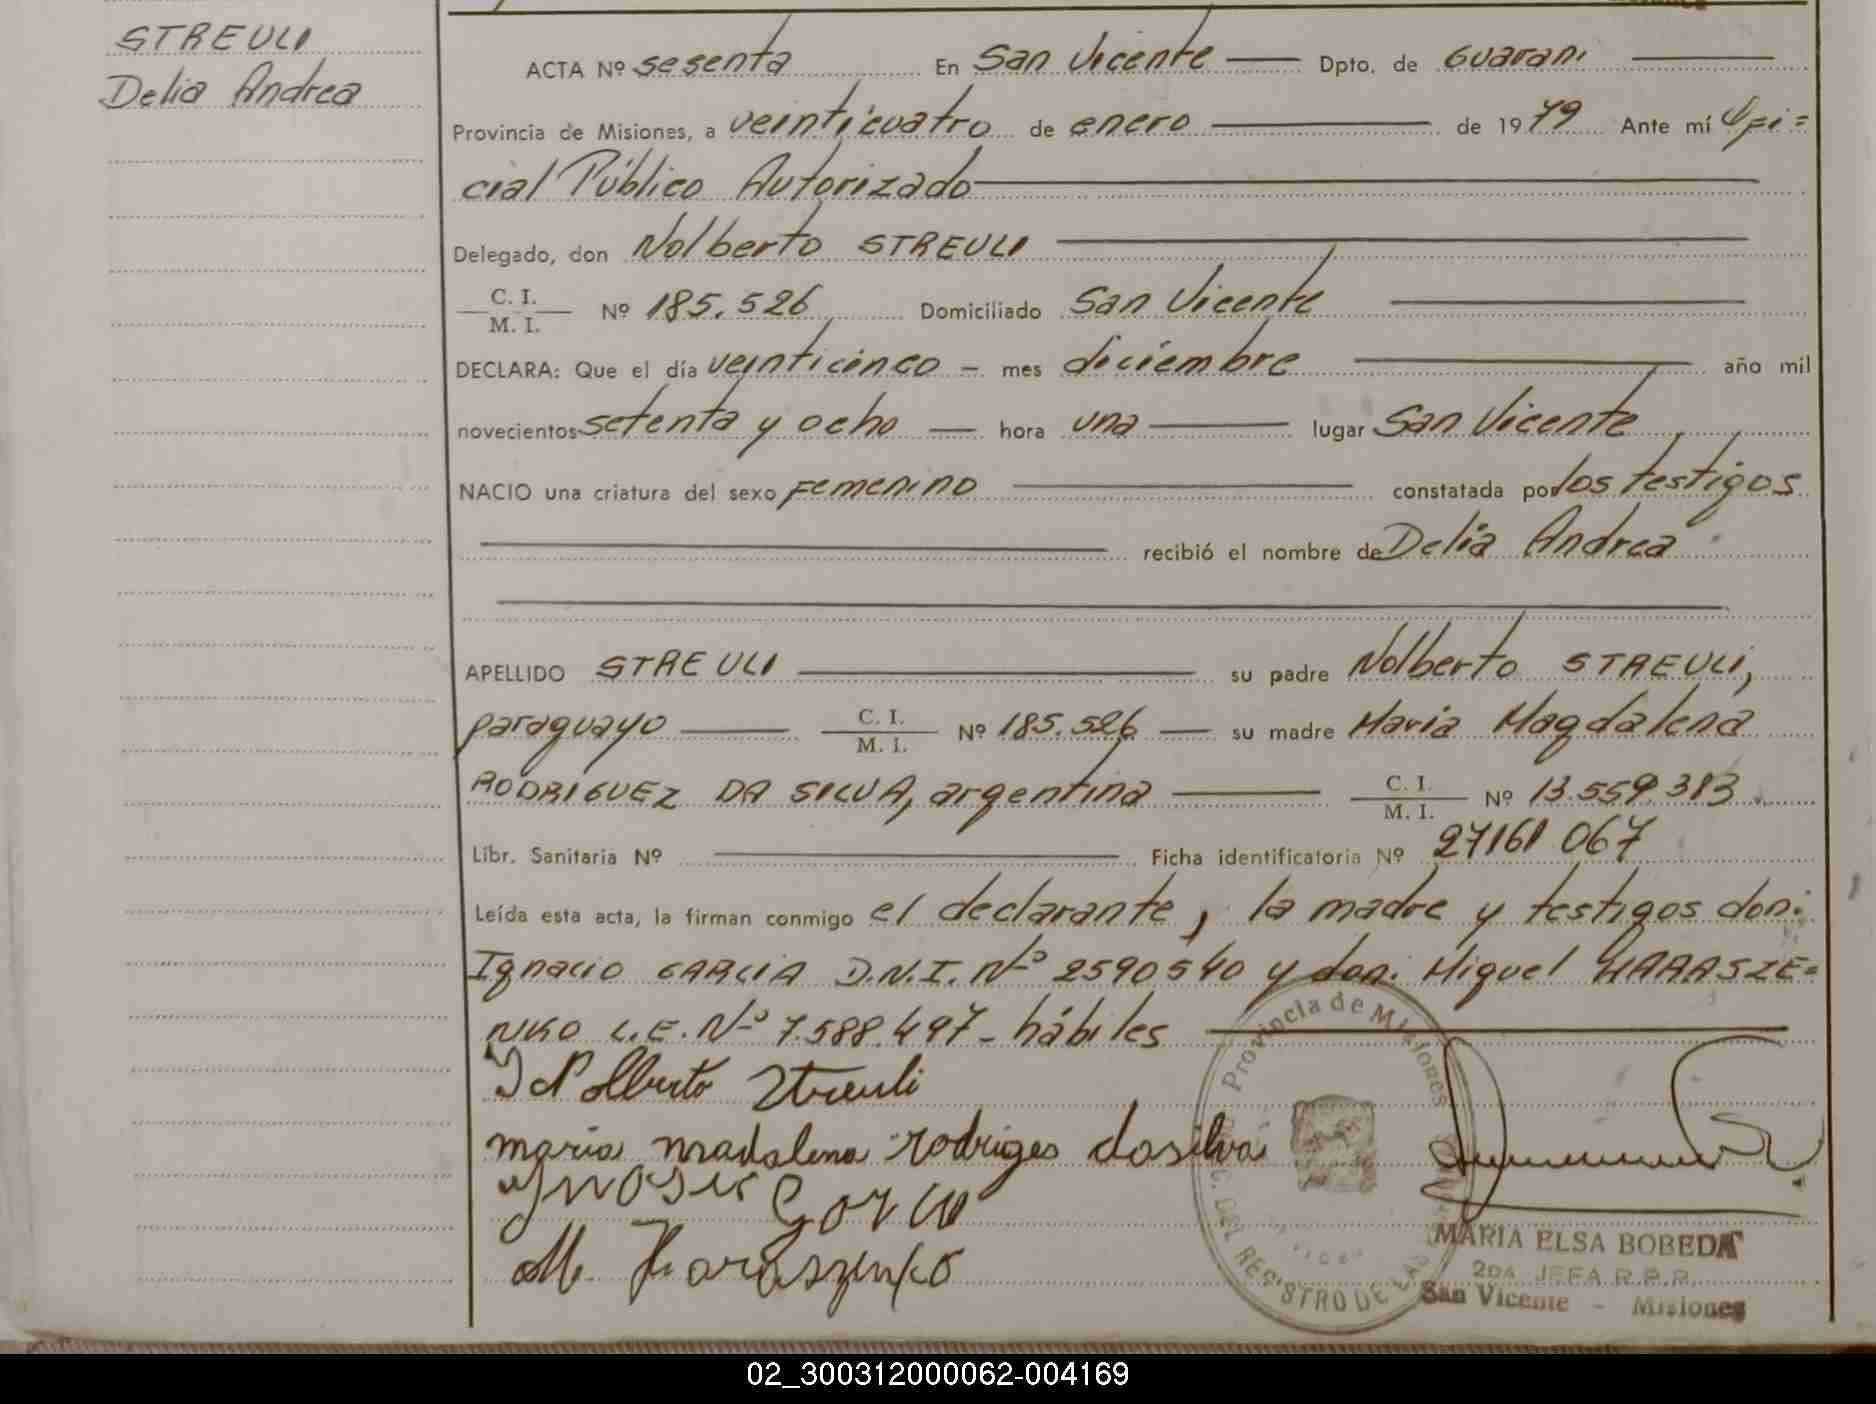 STREULI
Delia Andrea
ACTA Nº sesenta En San Vicente Dpto. de Guarani
Provincia de Misiones, a veinticuatro de enero de 1979 Ante mí Ofi=
cial Público Autorizado
Delegado, don Nolberto STREULI
C. I. / M. I. Nº 185.526 Domiciliado San Vicente
DECLARA: Que el día veinticinco – mes diciembre año mil
novecientos setenta y ocho — hora una lugar San Vicente
NACIO una criatura del sexo Femenino constatada por los testigos
recibió el nombre de Delia Andrea
APELLIDO STREULI su padre Nolberto STREULI,
paraguayo C. I. / M. I. Nº 185.526 — su madre Maria Magdalena
RODRIGUEZ DA SILVA, argentina C. I. / M. I. Nº 13.559.383
Libr. Sanitaria Nº Ficha identificatoria Nº 27161 067
Leída esta acta, la firman conmigo el declarante, la madre y testigos don:
Ignacio GARCIA D.N.I. Nº 2590540 y don: Miguel HARASZE=
NKO L.E. Nº 7.588.497 - hábiles
Nolberto Streuli
maria madalena rodriges dasilva
M. Haraszenko
Provincia de Misiones
DEL REGISTRO DE LAS
MARIA ELSA BOBEDA
2DA JEFA R.P.P.
San Vicente - Misiones
02_300312000062-004169